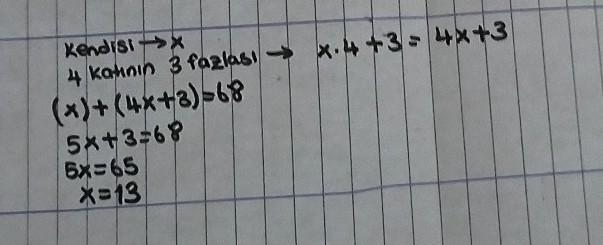 Kendisi → x
4 katının 3 fazlası → x.4+3 = 4x+3
(x)+(4x+3)=68
5x+3=68
5x=65
x=13